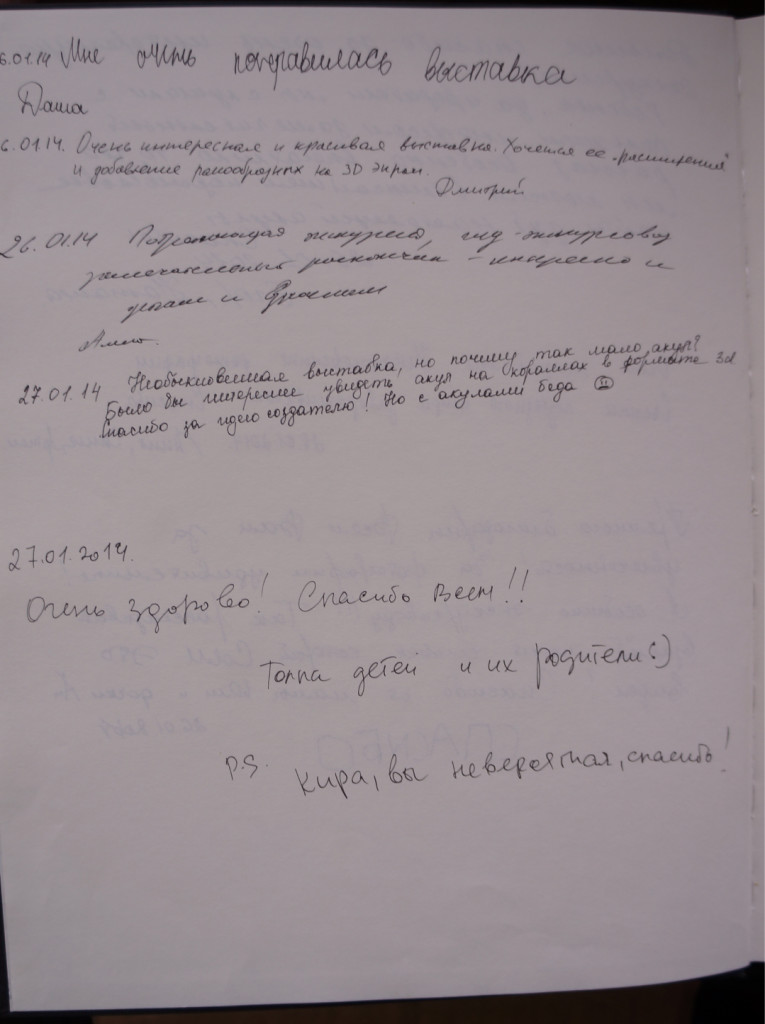 6.01.14 Мне очень понравилась выставка
Даша
6.01.14. Очень интересная и красивая выставка. Хочется ее расширения
и добавление ракообразных на 3D экран.
Дмитрий
26.01.14 Потрясающая экскурсия, гид-экскурсовод
замечательный рассказчик - интересно и
детям и взрослым
27.01.14 Необыкновенная выставка, но почему так мало акул?
Было бы интереснее увидеть акул на кораллах в формате 3d
Спасибо за идею создателю! Но с акулами беда
27.01.2014.
Очень здорово! Спасибо Всем!!
Толпа детей и их родители:)
P.S. Кира, вы невероятная, спасибо!